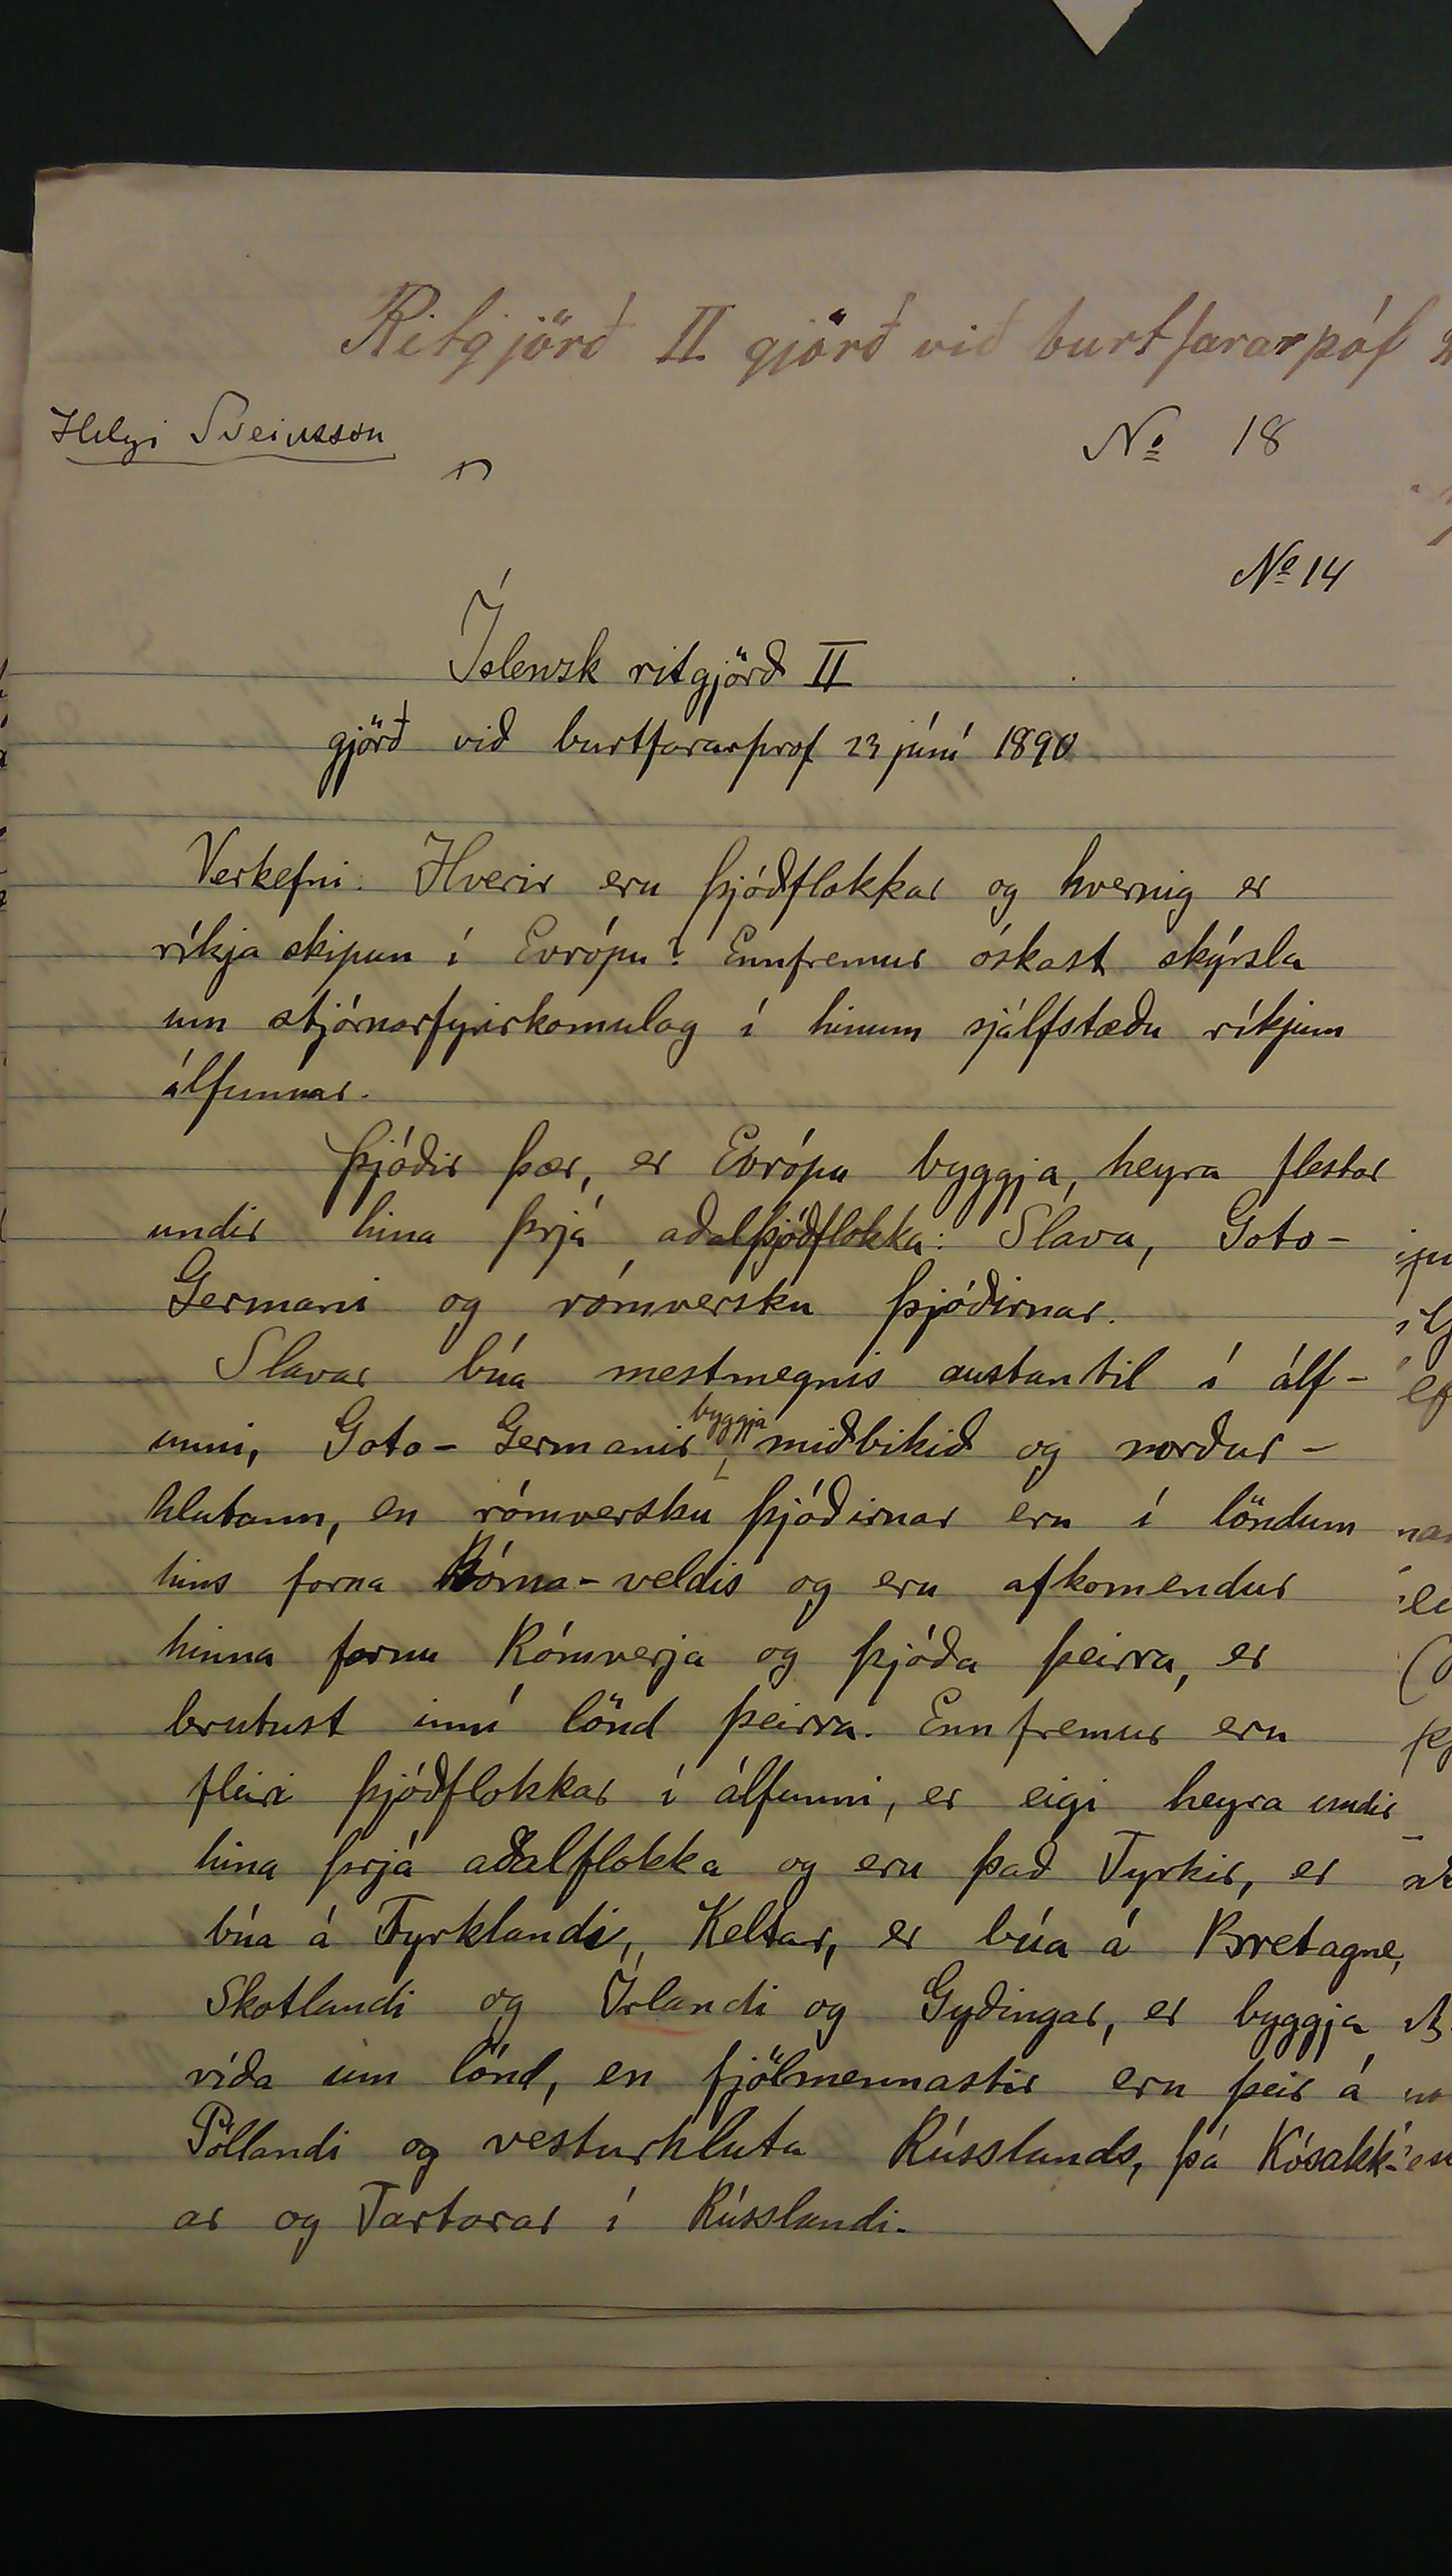 Ritgjörð II gjörð við burtfararpóf
Helgi Sveinsson
№ 18
№ 14
Íslenzk ritgjörð II
gjörð við burtfararprof 23 júní 1890
Verkefni. Hverir eru þjóðflokkar og hvernig er
ríkja skipun í Evrópu? Ennfremur óskast skýrsla
um stjórnarfyrirkomulag í hinum sjálfstæðu ríkjum
álfunnar.
Þjóðir þær, er Evrópu byggja, heyra flestar
undir hina þrjá aðalþjóðflokka: Slava, Goto-
Germani og rómversku þjóðirnar.
Slavar búa mestmegnis austantil í álf-
unni, Goto-Germanir byggja miðbikið og norður-
hlutann, en rómversku þjóðirnar eru í löndum
hins forna Róma-veldis og eru afkomendur
hinna fornu Rómverja og þjóða þeirra, er
brutust inní lönd þeirra. Enn fremur eru
fleiri þjóðflokkar í álfunni, er eigi heyra undir
hina þrjá aðalflokka og eru það Tyrkir, er
búa á Tyrklandi, Keltar, er búa á Bretagne,
Skotlandi og Írlandi og Gyðingar, er byggja
víða um lönd, en fjölmennastir eru þeir á
Póllandi og vesturhluta Rússlands, þá Kósakk-
ar og Tartarar í Rússlandi.